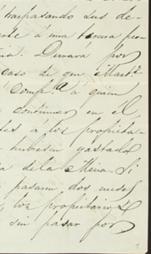 traspasando sus de-
á una
. Durará por
caso de que Mart.
Comp.ª á quien
continuar en él,
á los propieta-
hubiesen gastado
de la Mina. Si
pasaran dos meses
los propietarios
sin pasar por